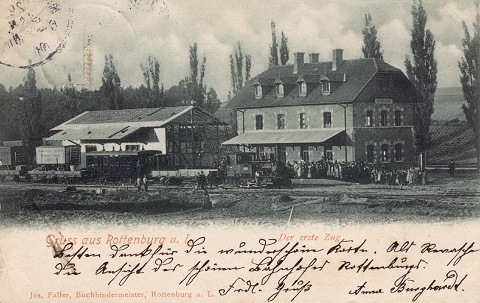 Gruss aus Rottenburg a. L.
Der erste Zug.
Besten Dank für die wunderschöne Karte. Als Revanche
die Ansicht des schönen Bahnhofes Rottenburgs.
Frdl. Gruß Anna Burghardt.
Jos. Faller, Buchbindermeister, Rottenburg a. L.